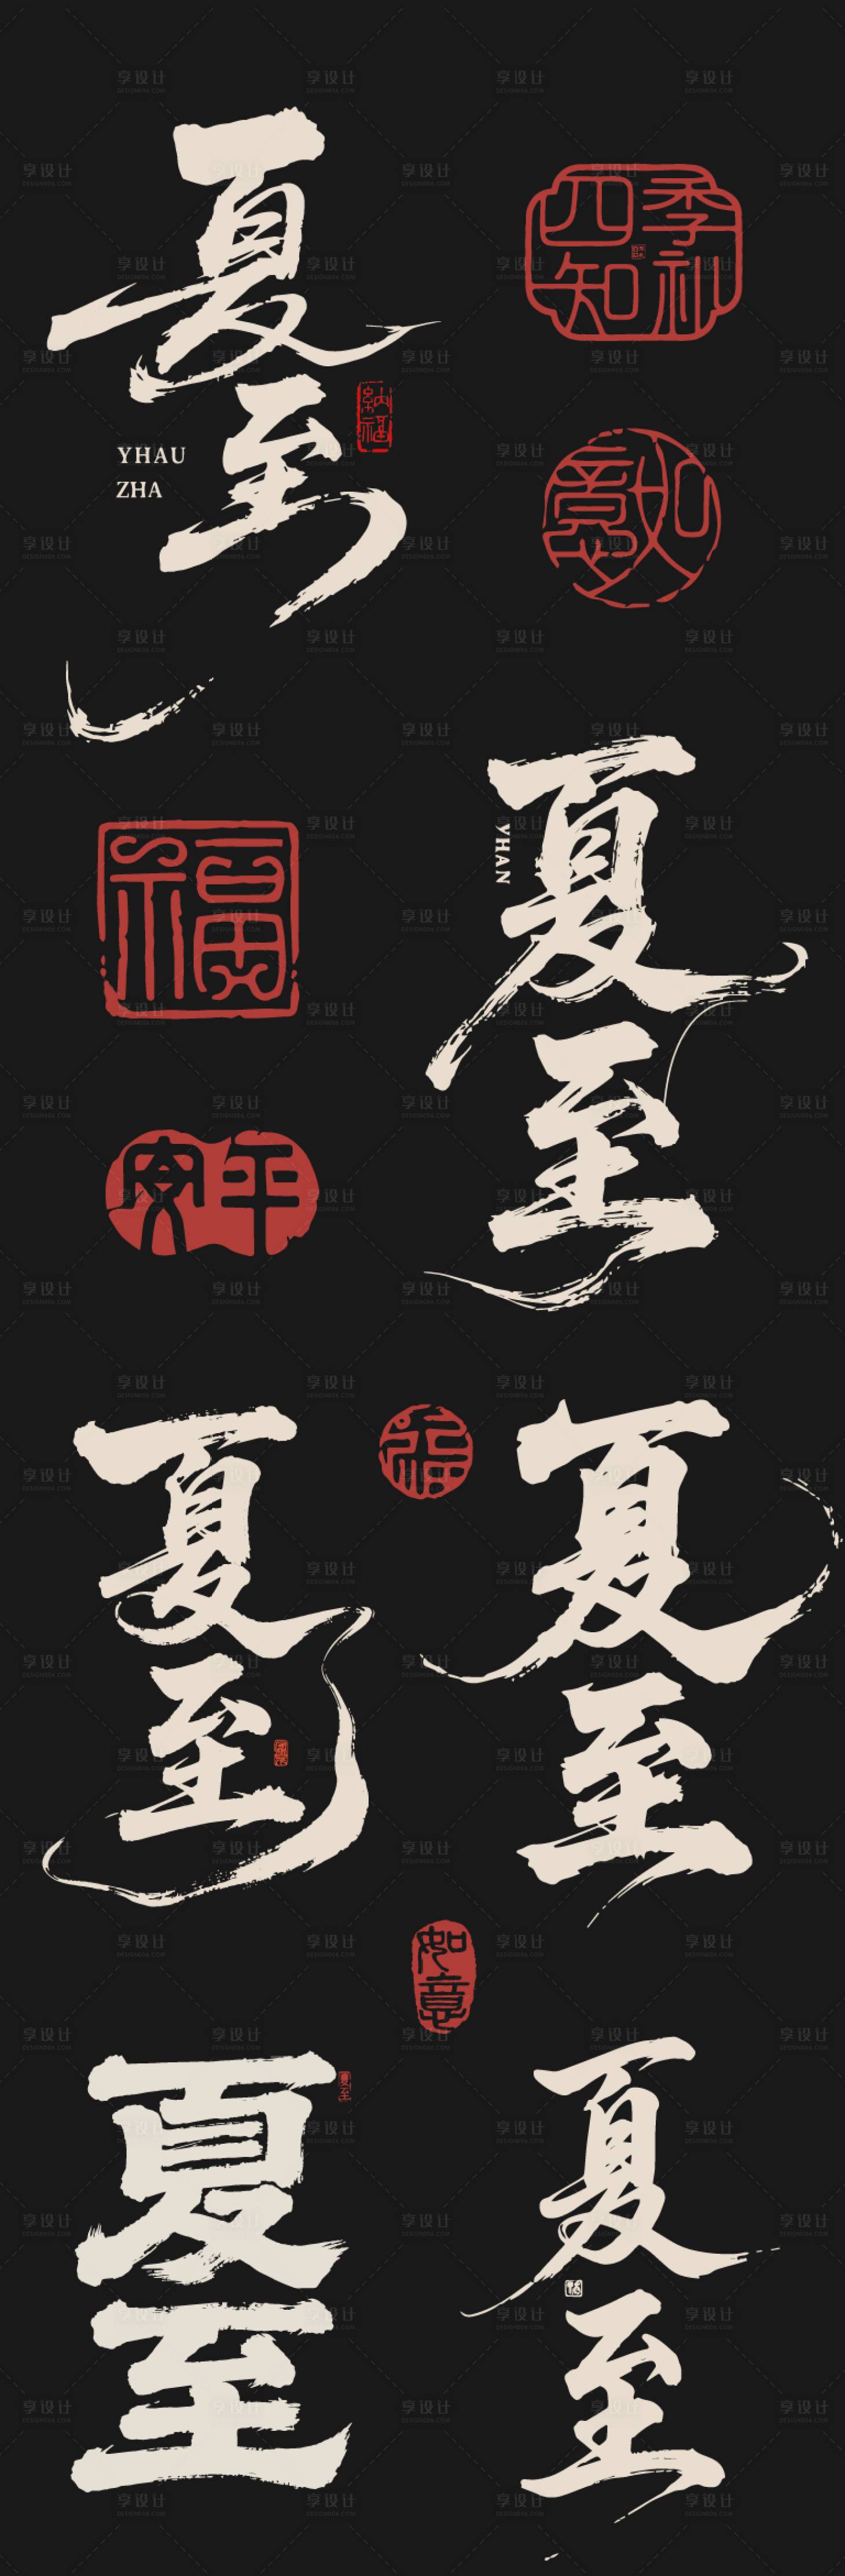 夏至
YHAU
ZHA
納福
四季
知礼
如意
夏至
YHAN
福
平安
夏至
福
夏至
如意
夏至
夏至
夏至
享设计
DESIGN006.COM